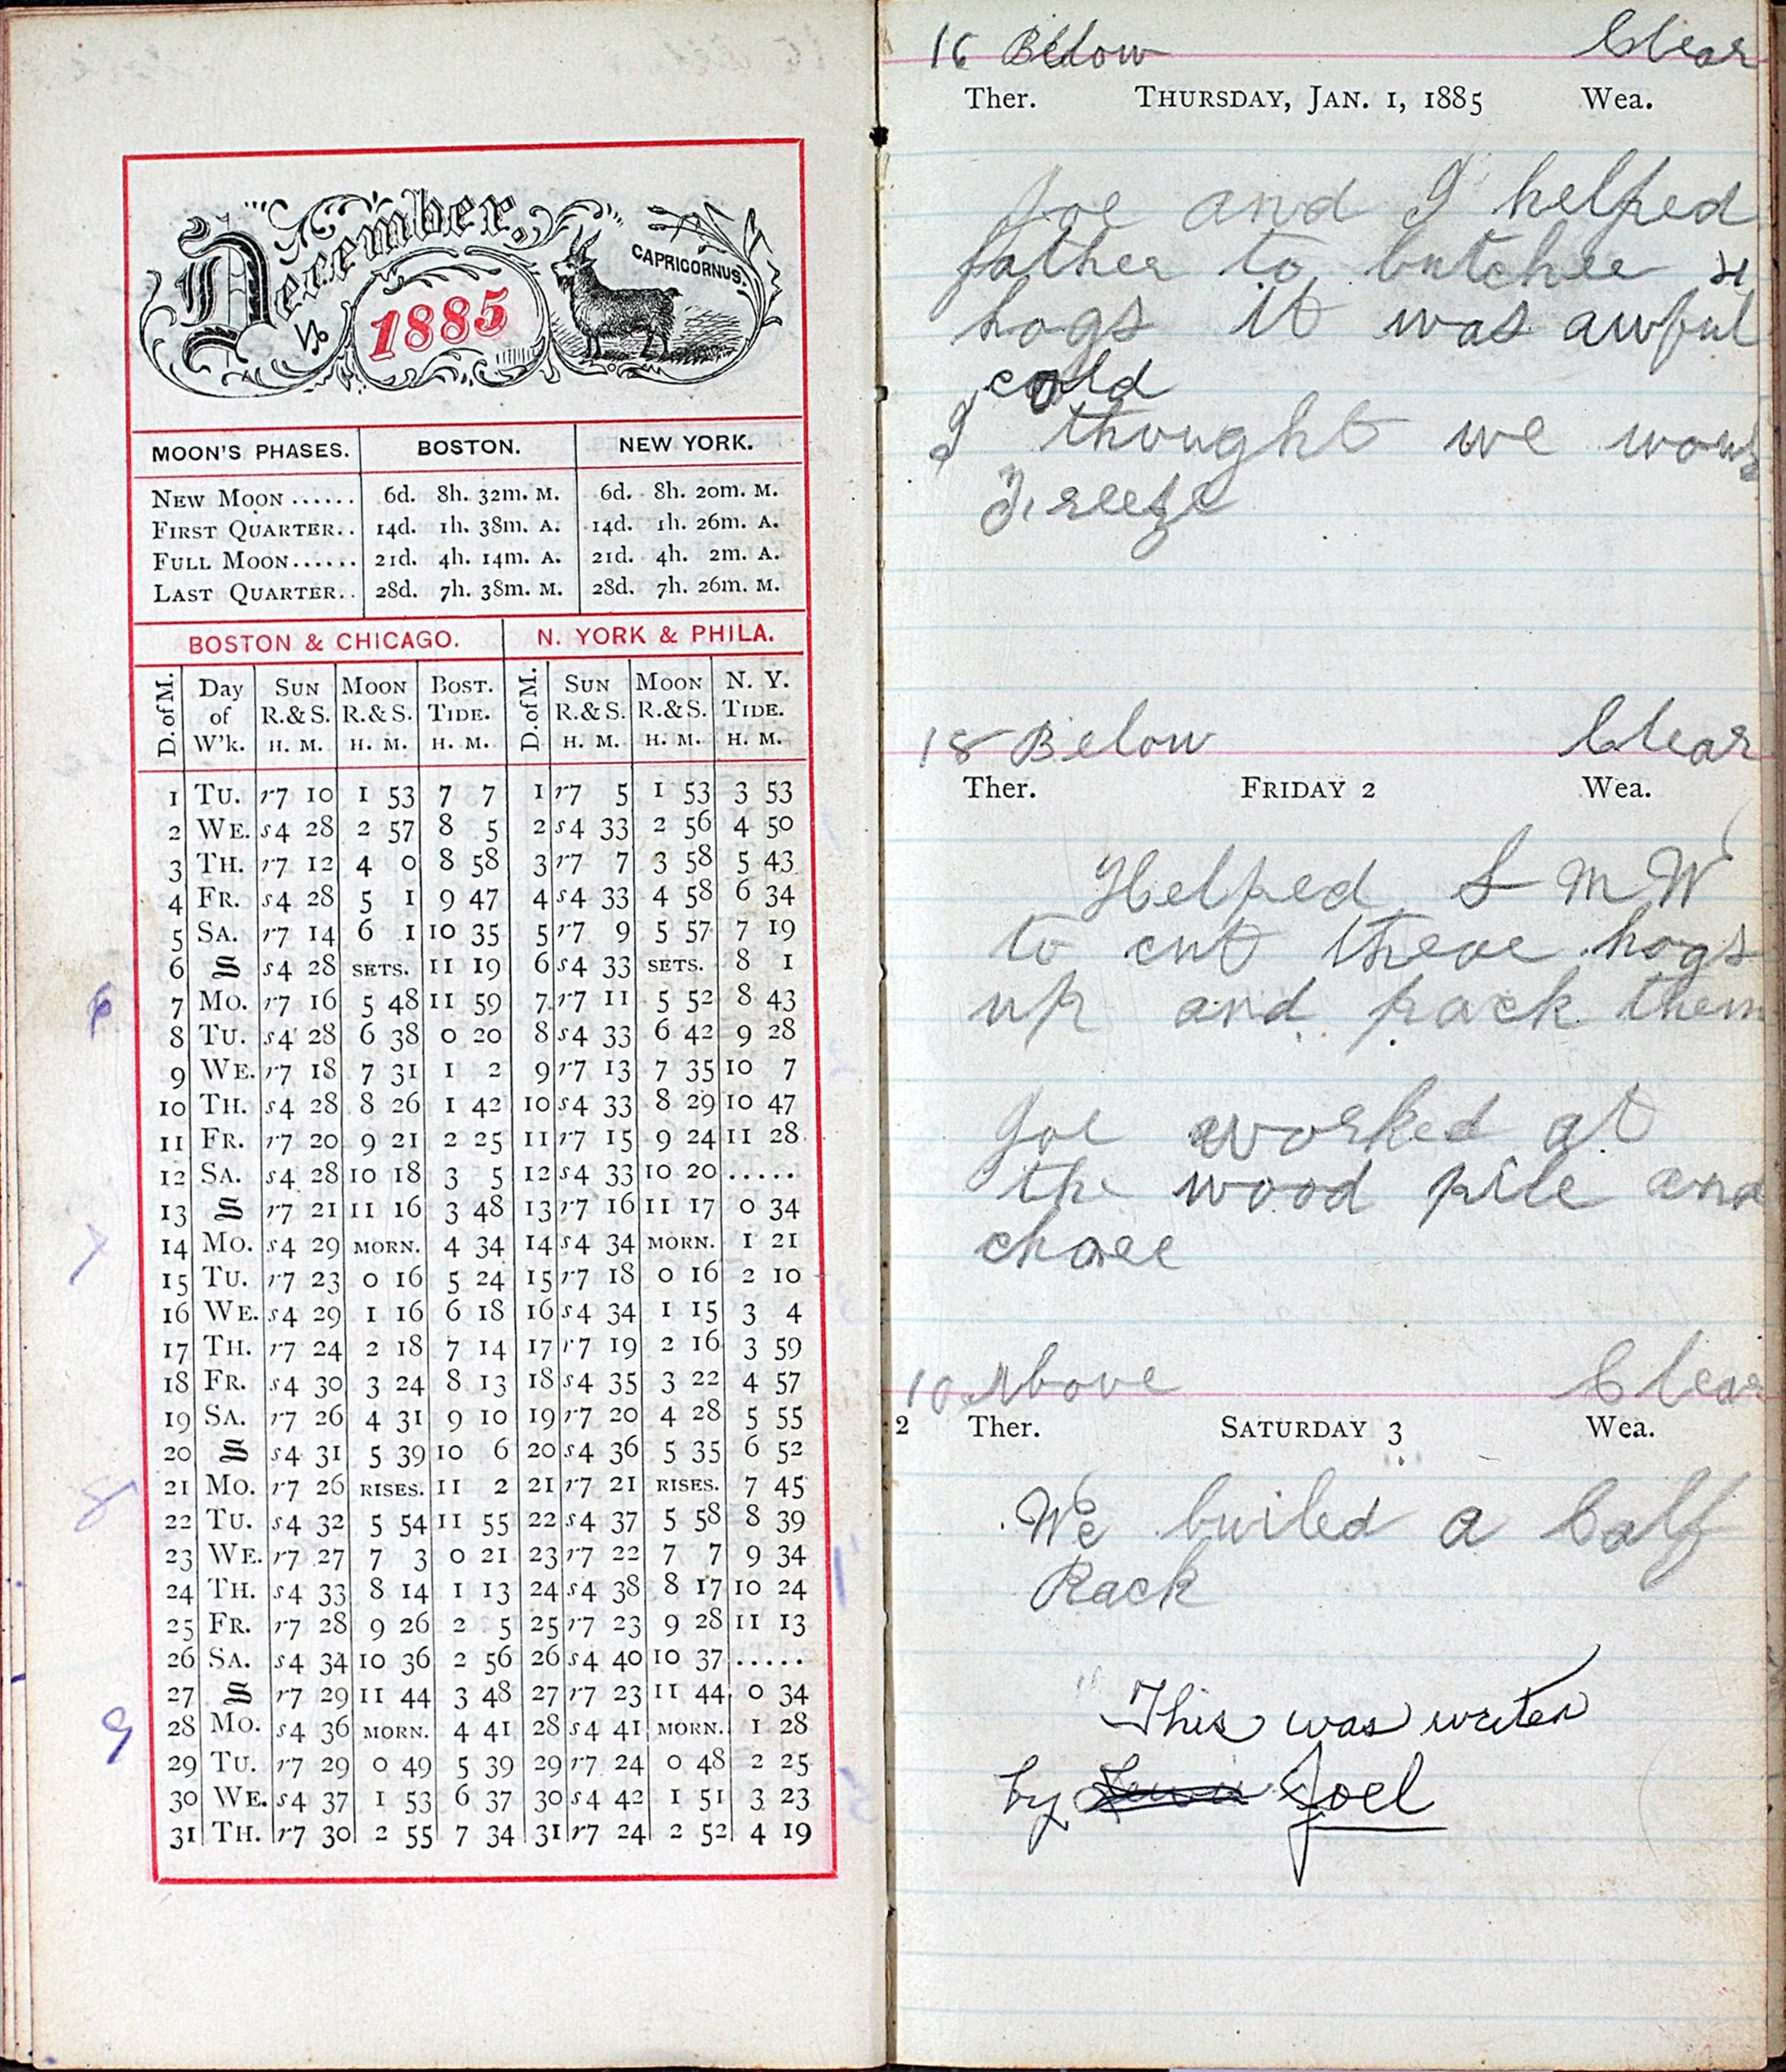 December,
1885
CAPRICORNUS.
MOON'S PHASES. BOSTON. NEW YORK.
NEW MOON...... 6d. 8h. 32m. M. 6d. 8h. 20m. M.
FIRST QUARTER.. 14d. 1h. 38m. A. 14d. 1h. 26m. A.
FULL MOON...... 21d. 4h. 14m. A. 21d. 4h. 2m. A.
LAST QUARTER.. 28d. 7h. 38m. M. 28d. 7h. 26m. M.
BOSTON & CHICAGO. N. YORK & PHILA.
D. of M. Day of W'k. SUN R.&S. H. M. MOON R.&S. H. M. BOST. TIDE. H. M. D. of M. SUN R.&S. H. M. MOON R.&S. H. M. N. Y. TIDE. H. M.
1 TU. r7 10 1 53 7 7 1 r7 5 1 53 3 53
2 WE. s4 28 2 57 8 5 2 s4 33 2 56 4 50
3 TH. r7 12 4 0 8 58 3 r7 7 3 58 5 43
4 FR. s4 28 5 1 9 47 4 s4 33 4 58 6 34
5 SA. r7 14 6 1 10 35 5 r7 9 5 57 7 19
6 S s4 28 SETS. 11 19 6 s4 33 SETS. 8 1
6 7 MO. r7 16 5 48 11 59 7 r7 11 5 52 8 43
8 TU. s4 28 6 38 0 20 8 s4 33 6 42 9 28
9 WE. r7 18 7 31 1 2 9 r7 13 7 35 10 7
10 TH. s4 28 8 26 1 42 10 s4 33 8 29 10 47
11 FR. r7 20 9 21 2 25 11 r7 15 9 24 11 28
12 SA. s4 28 10 18 3 5 12 s4 33 10 20 .....
13 S r7 21 11 16 3 48 13 r7 16 11 17 0 34
7 14 MO. s4 29 MORN. 4 34 14 s4 34 MORN. 1 21
15 TU. r7 23 0 16 5 24 15 r7 18 0 16 2 10
16 WE. s4 29 1 16 6 18 16 s4 34 1 15 3 4
17 TH. r7 24 2 18 7 14 17 r7 19 2 16 3 59
18 FR. s4 30 3 24 8 13 18 s4 35 3 22 4 57
19 SA. r7 26 4 31 9 10 19 r7 20 4 28 5 55
20 S s4 31 5 39 10 6 20 s4 36 5 35 6 52
8 21 MO. r7 26 RISES. 11 2 21 r7 21 RISES. 7 45
22 TU. s4 32 5 54 11 55 22 s4 37 5 58 8 39
23 WE. r7 27 7 3 0 21 23 r7 22 7 7 9 34
24 TH. s4 33 8 14 1 13 24 s4 38 8 17 10 24
25 FR. r7 28 9 26 2 5 25 r7 23 9 28 11 13
26 SA. s4 34 10 36 2 56 26 s4 40 10 37 .....
27 S r7 29 11 44 3 48 27 r7 23 11 44 0 34
9 28 MO. s4 36 MORN. 4 41 28 s4 41 MORN. 1 28
29 TU. r7 29 0 49 5 39 29 r7 24 0 48 2 25
30 WE. s4 37 1 53 6 37 30 s4 42 1 51 3 23
31 TH. r7 30 2 55 7 34 31 r7 24 2 52 4 19
16 Below Clear
Ther. THURSDAY, JAN. 1, 1885 Wea.
Joe and I helped
father to butcher
hogs it was awful
cold
I thought we would
Freeze
18 Below Clear
Ther. FRIDAY 2 Wea.
Helped S M W
to cut theve hogs
up and pack them
Joe worked at
the wood pile and
chores
10 Above Clear
2 Ther. SATURDAY 3 Wea.
We builed a Calf
Rack
This was writen
by Joel